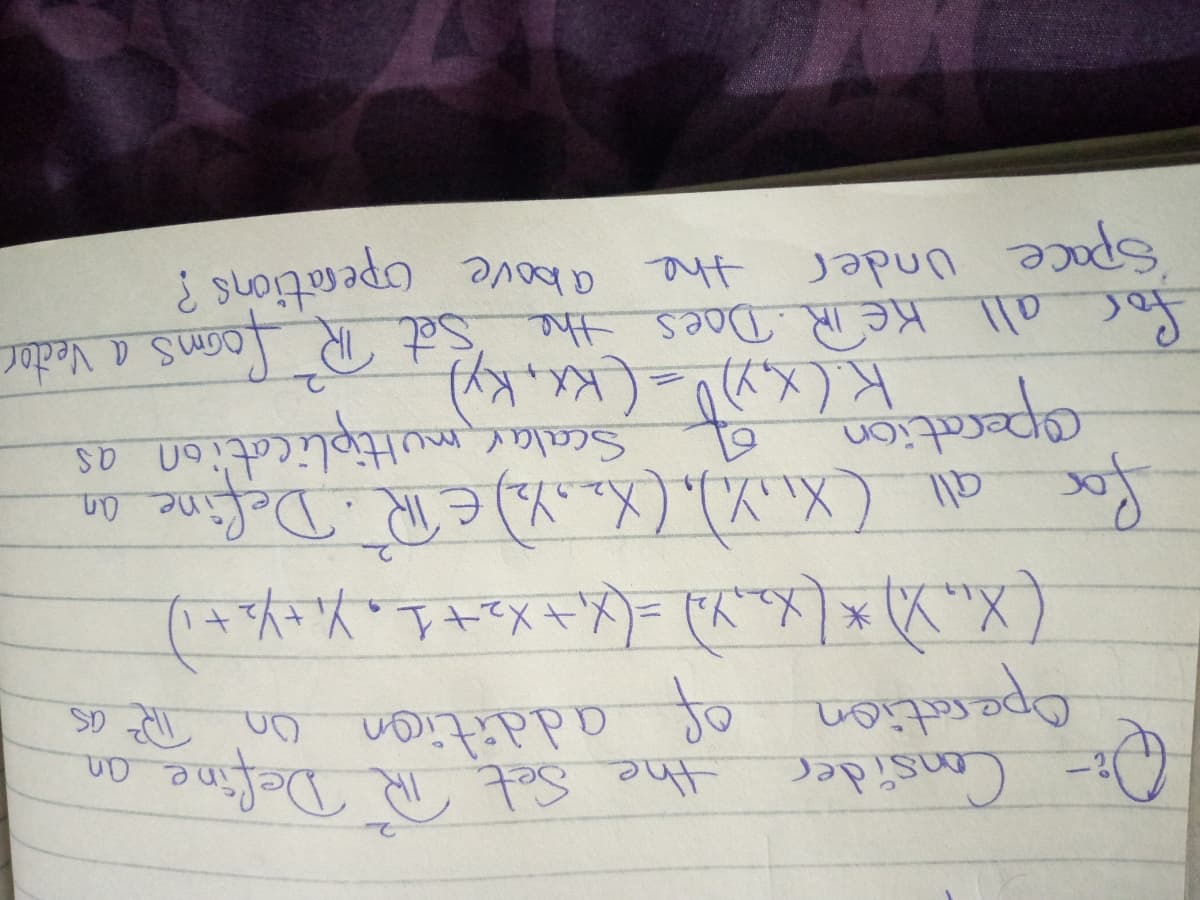 Q:- Consider the Set ℝ² Define an
Operation of addition on ℝ² as
(x₁, y₁) * (x₂, y₂) = (x₁ + x₂ + 1, y₁ + y₂ + 1)
for all (x₁, y₁), (x₂, y₂) ∈ ℝ². Define an
operation of Scalar multiplication as
K.(x, y) = (Kx, Ky)
for all K∈ℝ. Does the Set ℝ² forms a Vector
Space Under the above operations?